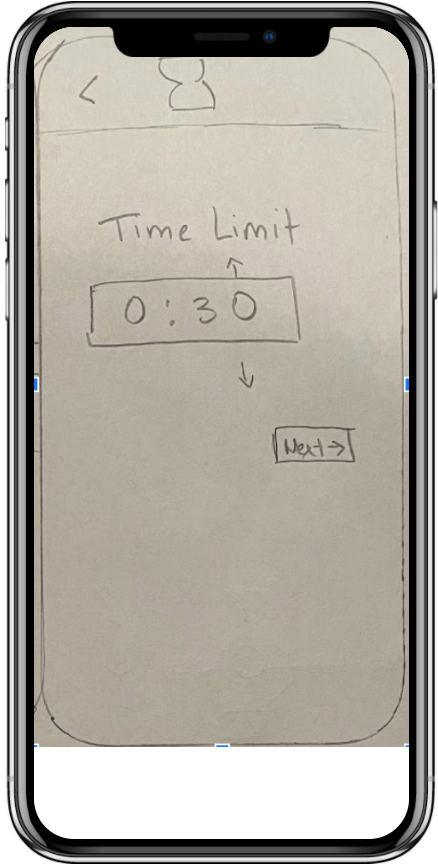 <
Time Limit
↑
0:30
↓
Next →